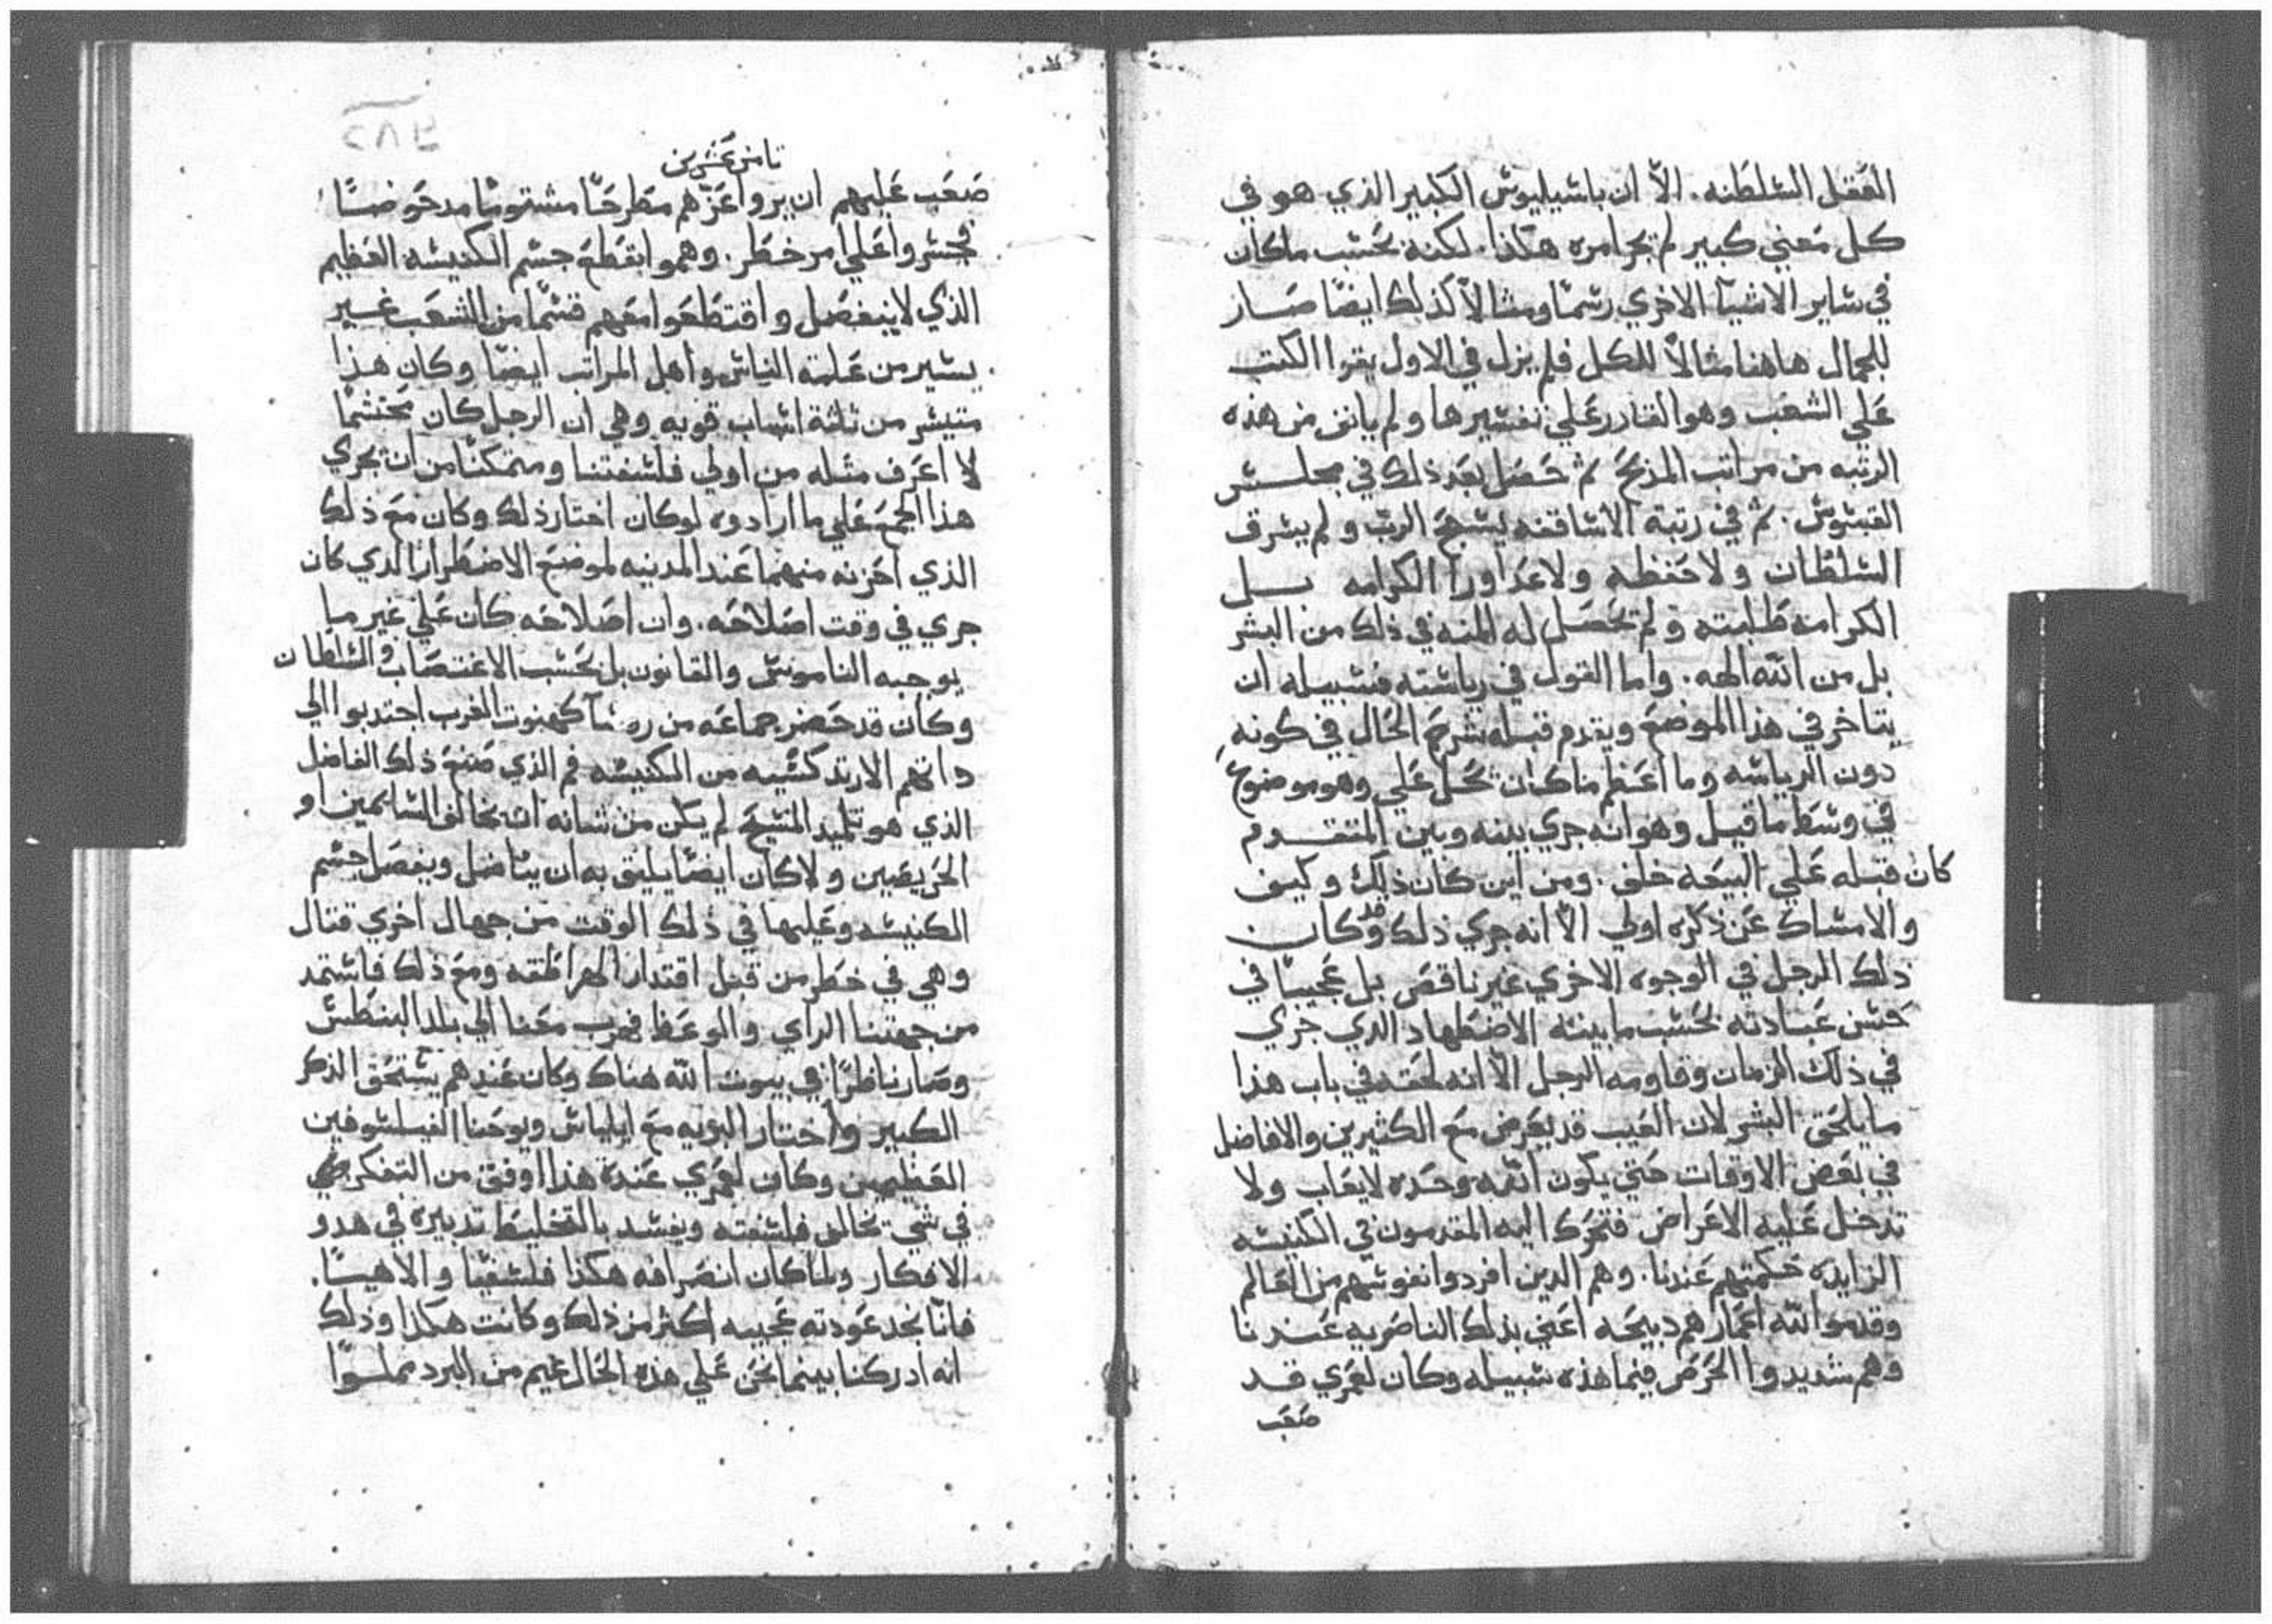 العقل السلطنه. الاّ ان باسيليوس الكبير الذي هو في
كل معني كبير لم يجر امره هكذا. لكنه بحسب ما كان
في ساير الاشيآ الاخري رسمًا ومثالاً كذلك ايضًا صار
للجمال هاهنا مثالاً للكل فلم يزل في الاول يقرا الكتب
علي الشعب وهو القادر علي تفسيرها ولم يانف من هذه
الرتبه من مراتب المذبح ثم حصل بعد ذلك في مجلس
القسوس. ثم في رتبة الاساقفه يسبح الرب ولم يسرق
السلطان ولا خطفه ولا عدا ورا الكرامه بل
الكرامه طلبته ولم تحصل له المنه في ذلك من البشر
بل من الله الهه. واما القول في رياسته فسبيله ان
يتاخر في هذا الموضع ويقدم قبله شرح الحال في كونه
دون الرياسه وما اعظم ما كان تحل علي وهو موضوع
في وسط ما قيل وهو انه جري بينه وبين المتقدم
كان قبله علي البيعه خلف. ومن اين كان ذلك وكيف
والامساك عن ذكره اولي الاّ انه جري ذلك وقد كان
ذلك الرجل في الوجوه الاخري غير ناقص بل عجيبًا في
حسن عبادته بحسب ما بينه الاضطهاد الذي جري
في ذلك الزمان وقاومه الرجل الاّ انه لحقه في باب هذا
ما يلحق البشر لان العيب قد يعرض مع الكثيرين والافاضل
في بعض الاوقات حتي يكون الله وحده لا يعاب ولا
تدخل عليه الاعراض فتحرك اليه المقدمون في الكنيسه
الزايده حكمتهم عندنا. وهم الدين افردوا نفوسهم من العالم
وقدموا لله اعمارهم دبيحه اعني بذلك الناصريه عندنا
وهم شديدوا الحرص فيما هذه سبيله وكان لعمري قد
صعب
ثامن عشرين
صعب عليهم ان يروا عزهم مطرحًا مشتومًا مدحوضًا
فجسروا علي امر خطر. وهموا بقطع جسم الكنيسه العظيم
الذي لا ينفصل واقتطعوا معهم قسمًا من الشعب غير
يسير من علية الناس واهل المراتب ايضًا وكان هذا
متيسر من ثلثة اسباب قويه وهي ان الرجل كان محتشمًا
لا اعرف مثله من اولي فلسفتنا ومتمكنًا من ان تجري
هذا الجمع علي ما ارادوه لو كان اختار ذلك وكان مع ذلك
الذي احزنه منهما عند المدينه لموضع الاضطرار الذي كان
جري في وقت اصلاحه. وان اصلاحه كان علي غير ما
يوجبه الناموس والقانون بل بحسب الاغتصاب والسلطان
وكان قد حضر جماعه من روسآ كهنوت الغرب اجتدبوا الي
داتهم الارتدكسيه من الكنيسه فم الذي صنع ذلك الفاضل
الذي هو تلميد المسيح لم يكن من شانه ان يخالف السالمين او
الحريصين ولا كان ايضًا يليق به ان يناضل ويفصل جسم
الكنيسه وعليها في ذلك الوقت من جهال اخري قتال
وهي في خطر من قبل اقتدار الهراطقه ومع ذلك فاستمد
من جهتنا الراي والوعظ فهرب معنا الي بلد البنطس
وصار ناظرًا في بيوت الله هناك وكان عندهم يستحق الذكر
الكبير واختار البريه مع ايلياس ويوحنا الفيلسوفين
العظيمين وكان لعمري عنده هذا اوفق من التفكر
في شي تخالف فلسفته ويفسد بالتخليط تدبيره في هدو
الافكار ولما كان انصرافه هكذا فلسفيًا والاهيًا.
فانا نجد عودته عجيبه اكثر من ذلك وكانت هكذا وذلك
انه ادركنا بينما نحن علي هذه الحال غيم من البرد مملوًا